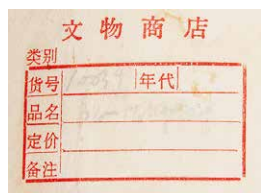 文物商店
类别
货号 年代
品名
定价
备注